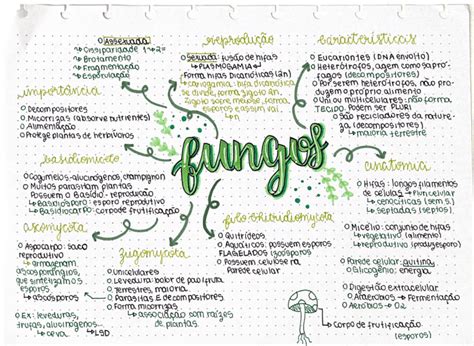 fungos
Reprodução
o Assexuada
↳ Cissiparidade 1→2
↳ Brotamento
↳ Fragmentação
↳ Esporulação
o Sexuada: fusão de hifas
↳ PLASMOGAMIA
Forma hifas Dicarióticas (2n)
↳ Cariogamia: hifa Dicariótica
se divide, forma zigoto
zigoto sofre meiose, forma
esporos e assim vai
características
o Eucariontes (DNA envolto)
o Heterótrofos, agem como sapró-
fagos (decompositores)
o Por serem heterótrofos, não pro-
duzem o próprio alimento
o Uni ou multicelulares: não forma
TECIDO. Podem ser PLURI
o São recicladores da nature-
za (decompositores)
↳ matéria terrestre
importância
o Decompositores
o Micorrizas (absorve nutrientes)
o Alimentação
o Protege plantas de herbívoros
basidiomiceto
o Cogumelos-alucinógenos, champignon
o Muitos parasitam plantas
Possuem o Basídio - reprodução
↳ Basidiósporo: esporo reprodutivo
↳ Basidiocarpo: corpo de frutificação
anatomia
o Hifas: longos filamentos
de células
↳ cenocíticas (sem s.)
↳ septadas (septos)
o Micélio: conjunto de hifas
↳ vegetativo (aliment)
↳ reprodutivo (prod/esporo)
o Parede celular: quitina
o Glicogênio: energia
o Digestão extracelular
o Anaeróbios → Fermentação
o Aeróbios → O2
↳ Corpo de frutificação
(esporos)
ascomycota
o Ascocarpo: saco
reprodutivo
↳ ascósporos
o EX: leveduras,
trufas, alucinógenos...
↳ LSD
zygomycota
o Unicelulares
o Levedura: bolor de pão/fruta
o Terrestres, maioria
o Parasitas E decompositores
o Forma micorrizas
↳ associação com raízes
de plantas
filo chitridiomycota
o Quitrídeos
o Aquáticos, possuem esporos
FLAGELADOS (zoósporos)
o Possuem celulose na
Parede celular